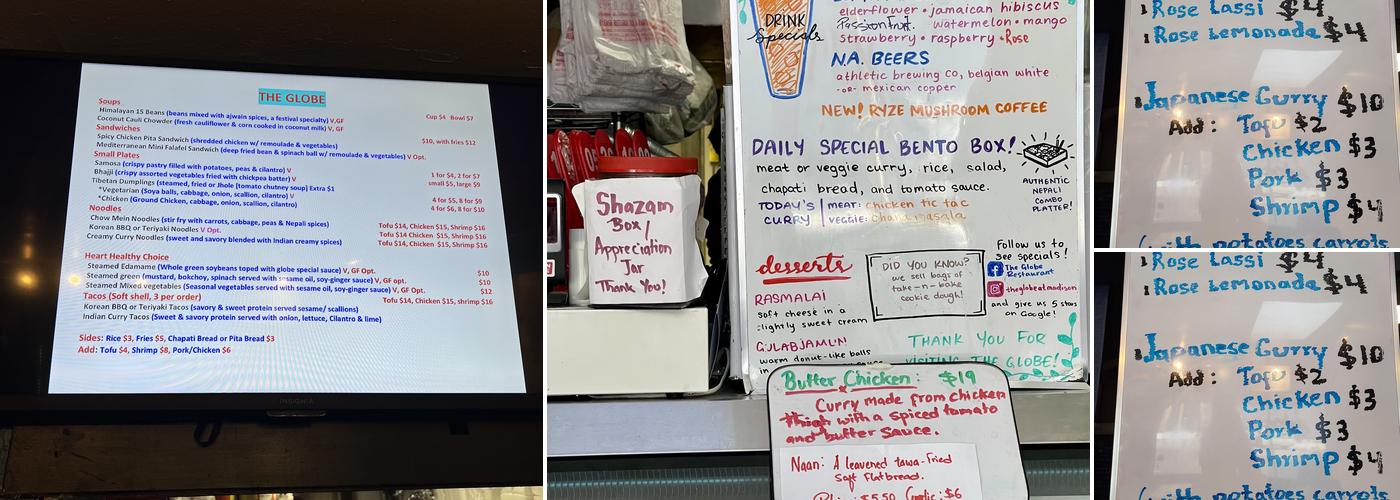 THE GLOBE
Soups
Himalayan 15 Beans (beans mixed with ajwain spices, a festival specialty) V,GF
Coconut Cauli Chowder (fresh cauliflower & corn cooked in coconut milk) V, GF
Cup $4 Bowl $7
Sandwiches
Spicy Chicken Pita Sandwich (shredded chicken w/ remoulade & vegetables)
$10, with fries $12
Mediterranean Mini Falafel Sandwich (deep fried bean & spinach ball w/ remoulade & vegetables) V Opt.
Small Plates
Samosa (crispy pastry filled with potatoes, peas & cilantro) V
1 for $4, 2 for $7
Bhajji (crispy assorted vegetables fried with chickpea batter) V
small $5, large $9
Tibetan Dumplings (steamed, fried or Jhole [tomato chutney soup] Extra $1
*Vegetarian (Soya balls, cabbage, onion, scallion, cilantro) V
4 for $5, 8 for $9
*Chicken (Ground Chicken, cabbage, onion, scallion, cilantro)
4 for $6, 8 for $10
Noodles
Chow Mein Noodles (stir fry with carrots, cabbage, peas & Nepali spices)
Tofu $14, Chicken $15, Shrimp $16
Korean BBQ or Teriyaki Noodles V Opt.
Tofu $14, Chicken $15, Shrimp $16
Creamy Curry Noodles (sweet and savory blended with Indian creamy spices)
Tofu $14, Chicken $15, Shrimp $16
Heart Healthy Choice
Steamed Edamame (Whole green soybeans toped with globe special sauce) V, GF Opt.
$10
Steamed green (mustard, bokchoy, spinach served with sesame oil, soy-ginger sauce) V, GF Opt.
$10
Steamed Mixed vegetables (Seasonal vegetables served with sesame oil, soy-ginger sauce) V, GF Opt.
$12
Tacos (Soft shell, 3 per order)
Tofu $14, Chicken $15, shrimp $16
Korean BBQ or Teriyaki Tacos (savory & sweet protein served sesame/ scallions)
Indian Curry Tacos (Sweet & savory protein served with onion, lettuce, Cilantro & lime)
Sides: Rice $3, Fries $5, Chapati Bread or Pita Bread $3
Add: Tofu $4, Shrimp $8, Pork/Chicken $6
INSIGNIA
Shazam
Box/
Appreciation
Jar
Thank You!
DRINK
Specials
elderflower • jamaican hibiscus
Passion Fruit. watermelon • mango
strawberry • raspberry • Rose
N.A. BEERS
athletic brewing co, belgian white
-or- mexican copper
NEW! RYZE MUSHROOM COFFEE
DAILY SPECIAL BENTO BOX!
meat or veggie curry, rice, salad,
chapati bread, and tomato sauce.
TODAY'S
CURRY
meat: chicken tic tac
veggie: chana masala
AUTHENTIC
NEPALI
COMBO
PLATTER!
desserts
RASMALAI
soft cheese in a
slightly sweet cream
GULABJAMUN
warm donut-like balls
DID YOU KNOW?
we sell bags of
take-n-bake
cookie dough!
Follow us to
see specials!
The Globe
Restaurant
theglobeatmadison
and give us 5 stars
on Google!
THANK YOU FOR
VISITING THE GLOBE!
Butter Chicken: $19
Curry made from chicken
thigh with a spiced tomato
and butter sauce.
Naan: A leavened tawa-fried
soft flatbread.
$5.50 Garlic: $6
Rose Lassi $4
Rose Lemonade $4
Japanese Curry $10
Add: Tofu $2
Chicken $3
Pork $3
Shrimp $4
(with potatoes carrots
Rose Lassi $4
Rose Lemonade $4
Japanese Curry $10
Add: Tofu $2
Chicken $3
Pork $3
Shrimp $4